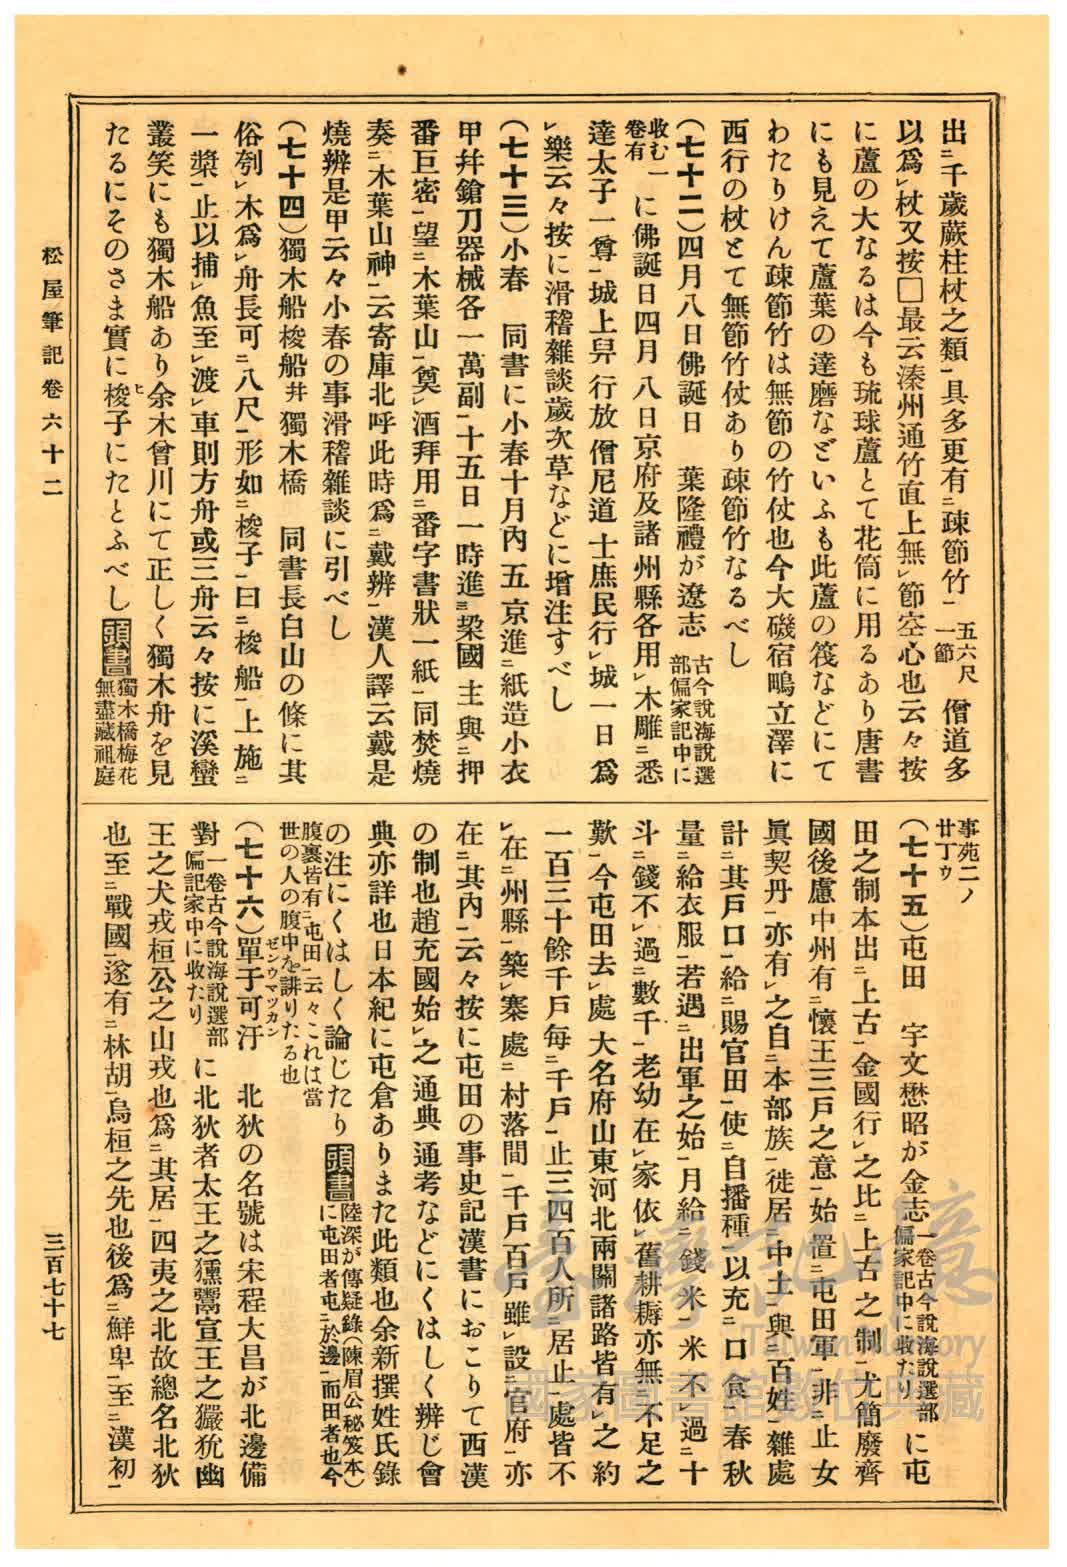 出ニ千歲蕨柱杖之類一具多更有ニ疎節竹一五六尺一節僧道多
以爲レ杖又按□最云溱州通竹直上無レ節空心也云々按
に蘆の大なるは今も琉球蘆とて花筒に用るあり唐書
にも見えて蘆葉の達磨などいふも此蘆の筏などにて
わたりけん疎節竹は無節の竹仗也今大磯宿鴫立澤に
西行の杖とて無節竹仗あり疎節竹なるべし
(七十二)四月八日佛誕日　葉隆禮が遼志古今說海說選部偏家記中に
收む一卷有に佛誕日四月八日京府及諸州縣各用レ木雕ニ悉
達太子一尊一城上舁行放僧尼道士庶民行レ城一日爲
レ樂云々按に滑稽雜談歲次草などに增注すべし
(七十三)小春　同書に小春十月內五京進ニ紙造小衣
甲幷鎗刀器械各一萬副一十五日一時進ニ梁國主與ニ押
番巨密一望ニ木葉山一奠レ酒拜用ニ番字書狀一紙一同焚燒
奏ニ木葉山神一云寄庫北呼此時爲ニ戴辨一漢人譯云戴是
燒辨是甲云々小春の事滑稽雜談に引べし
(七十四)獨木船梭船幷獨木橋　同書長白山の條に其
俗刳レ木爲レ舟長可ニ八尺一形如ニ梭子一曰ニ梭船一上施ニ
一槳一止以捕レ魚至レ渡レ車則方舟或三舟云々按に溪蠻
叢笑にも獨木船あり余木曾川にて正しく獨木舟を見
たるにそのさま實に梭ヒ子にたとふべし頭書獨木橋梅花無盡藏祖庭
事苑二ノ廿丁ウ
(七十五)屯田　宇文懋昭が金志一卷古今說海說選部偏家記中に收たりに屯
田之制本出ニ上古一金國行レ之比ニ上古之制一尤簡廢齊
國後慮中州有ニ懷王三戶之意一始置ニ屯田軍一非ニ止女
眞契丹一亦有レ之自ニ本部族一徙居ニ中土一與ニ百姓一雜處
計ニ其戶口一給ニ賜官田一使ニ自播種一以充ニ口食一春秋
量ニ給衣服一若遇ニ出軍之始一月給ニ錢米一米不レ過ニ十
斗一錢不レ過ニ數千一老幼在レ家依レ舊耕耨亦無ニ不足之
歎一今屯田去レ處大名府山東河北兩關諸路皆有レ之約
一百三十餘千戶每ニ千戶一止三四百人所ニ居止一處皆不
レ在ニ州縣一築レ寨處ニ村落間一千戶百戶雖レ設ニ官府一亦
在ニ其內一云々按に屯田の事史記漢書におこりて西漢
の制也趙充國始レ之通典通考などにくはしく辨じ會
典亦詳也日本紀に屯倉ありまた此類也余新撰姓氏錄
の注にくはしく論じたり頭書陸深が傳疑錄(陳眉公秘笈本)に屯田者屯ニ於邊一而田者也今
腹裏皆有ニ屯田一云々これは當世の人の腹中を誹りたる也
(七十六)單于可汗ゼンウマツカン　北狄の名號は宋程大昌が北邊備
對一卷古今說海說選部偏記家中に收たりに北狄者太王之獯鬻宣王之玁狁幽
王之犬戎桓公之山戎也爲ニ其居一四夷之北故總名北狄
也至ニ戰國一遂有ニ林胡一烏桓之先也後爲ニ鮮卑一至ニ漢初一
松屋筆記卷六十二
三百七十七
臺灣記憶
Taiwan Memory
國家圖書館數位典藏